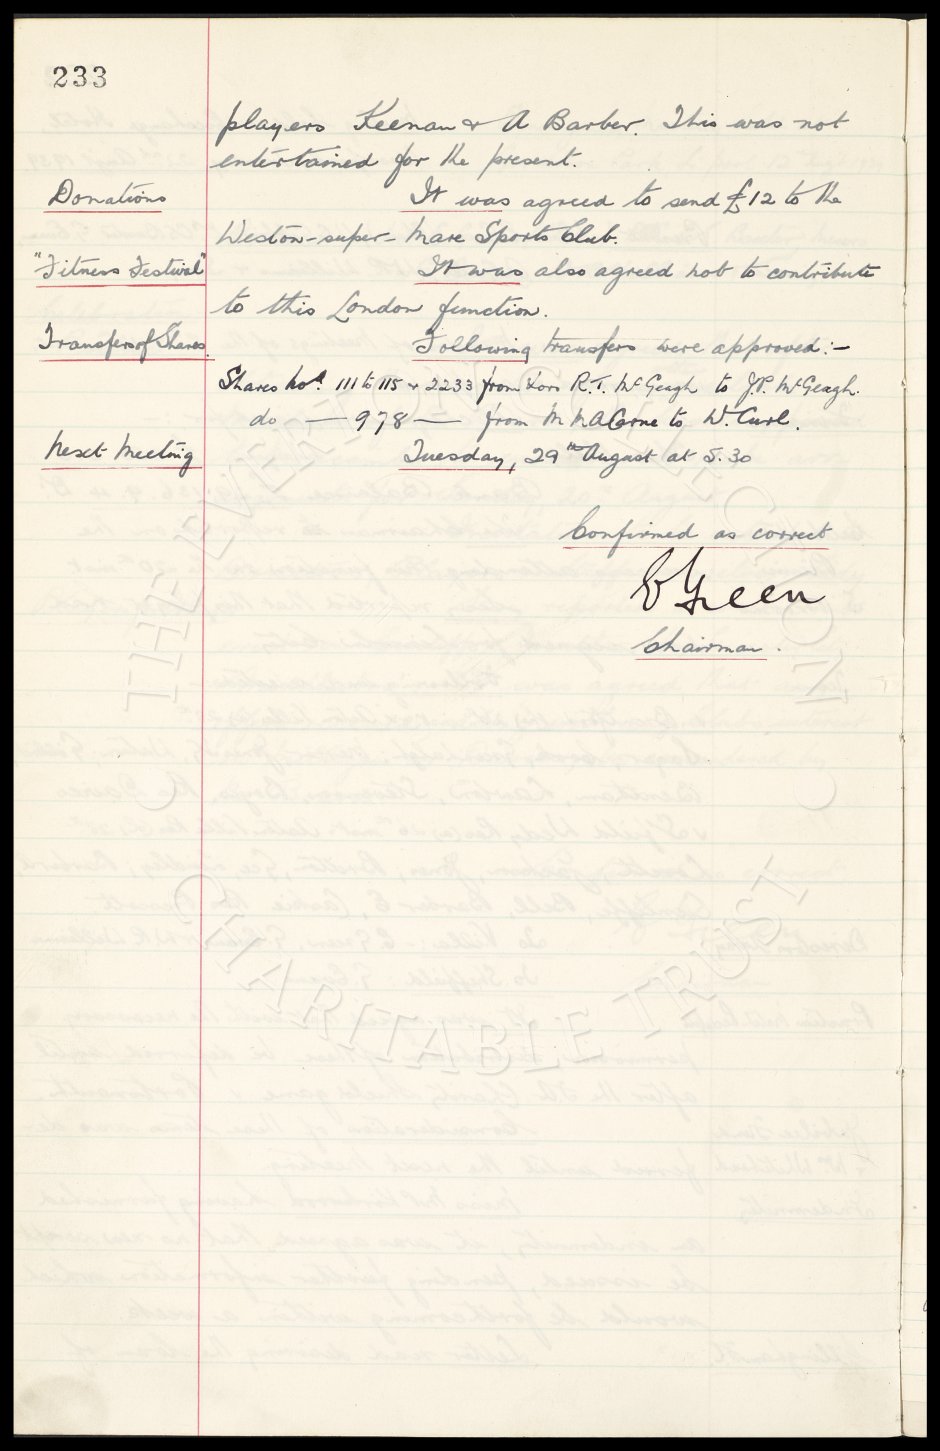 233
players Keenan & A Barber. This was not
entertained for the present.
Donations It was agreed to send £12 to the
Weston-super-Mare Sports Club.
"Fitness Festival" It was also agreed not to contribute
to this London function.
Transfers of Shares. Following transfers were approved:-
Shares Nos. 111 to 115 & 2233 from Xors R.T. McGeagh to J.P. McGeagh.
do — 978 — from M M A Corne to W. Curl.
Next Meeting Tuesday, 29th August at 5.30
Confirmed as correct
E Green
Chairman.
THE EVERTON COLLECTION
CHARITABLE TRUST